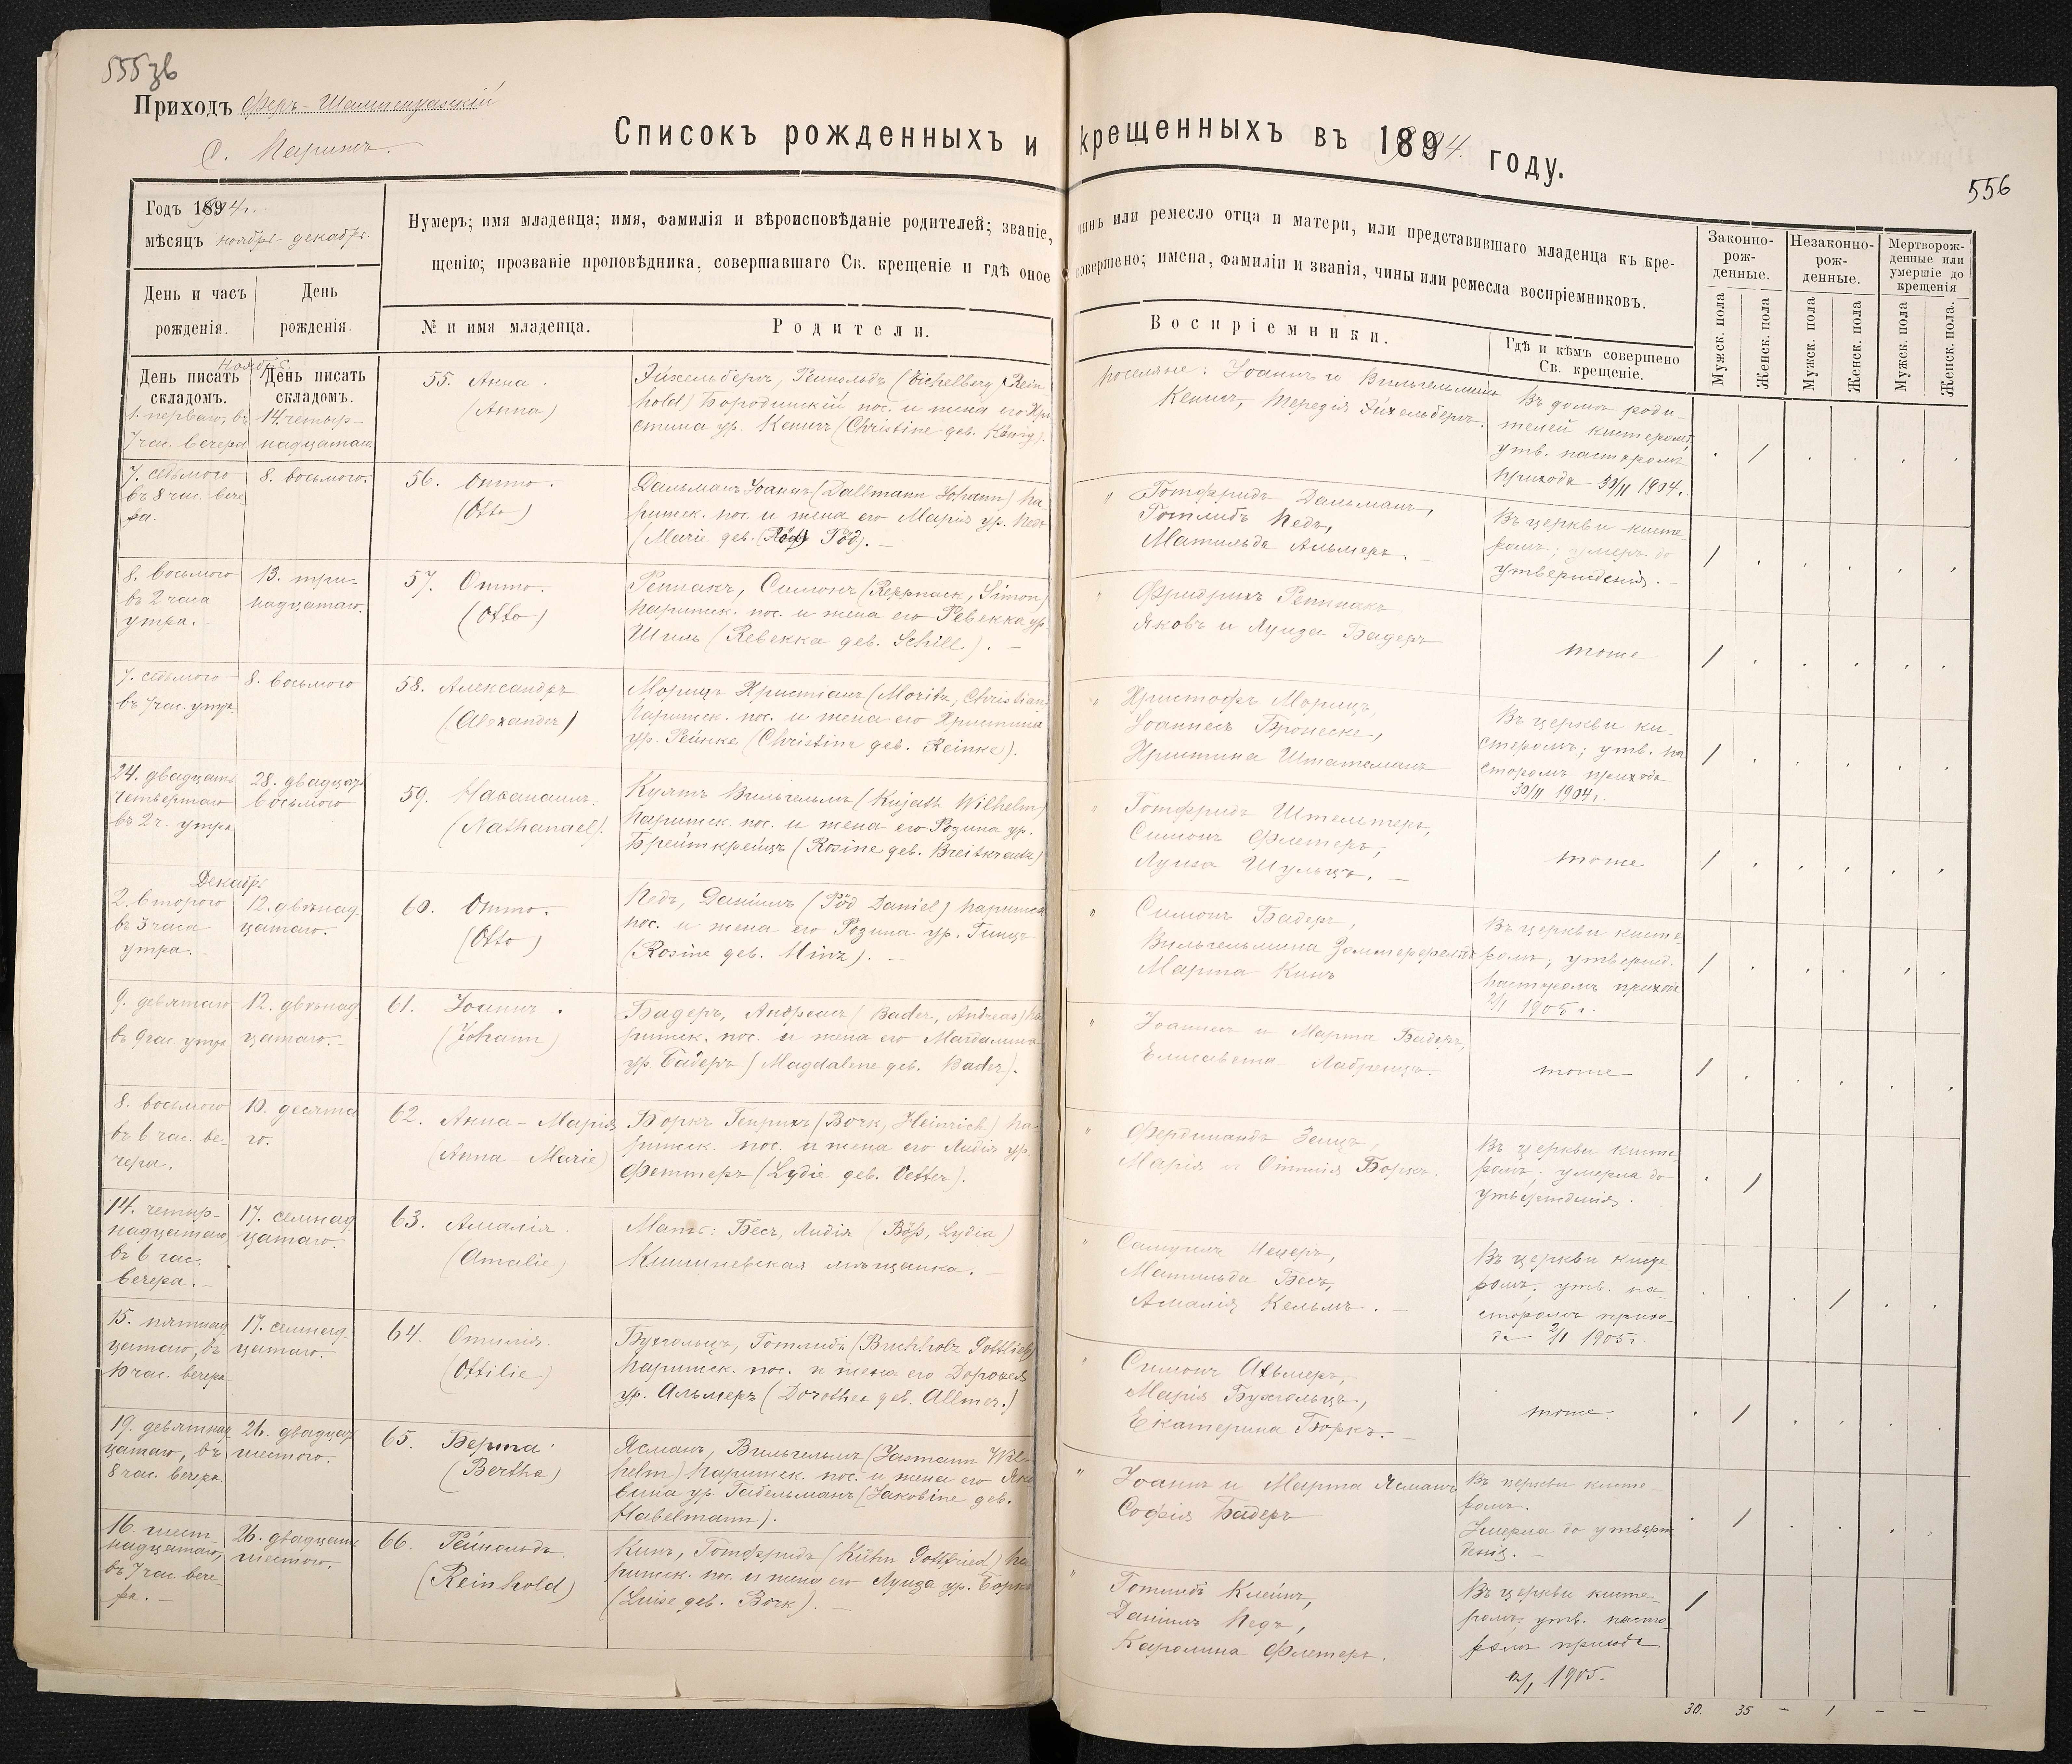 555зв
Приходъ Феръ-Шампенуазскій
С. Парижъ.
Списокъ рожденныхъ и крещенныхъ въ 1904. году.
556
Годъ 1904 г.
мѣсяцъ ноябрь - декабрь.
Нумеръ; имя младенца; имя, фамилія и вѣроисповѣданіе родителей; званіе, чинъ или ремесло отца и матери, или представившаго младенца къ кре-
щенію; прозваніе проповѣдника, совершавшаго Св. крещеніе и гдѣ оное совершено; имена, фамиліи и званія, чины или ремесла воспріемниковъ.
День и часъ рожденія.
День рожденія.
№ и имя младенца.
Родители.
Воспріемники.
Гдѣ и кѣмъ совершено Св. крещеніе.
Законно-рож-денные.
Незаконно-рож-денные.
Мертворож-денные или умершіе до крещенія
Мужск. пола
Женск. пола
Мужск. пола
Женск. пола
Мужск. пола
Женск. пола.
Ноябрь
День писать складомъ.
День писать складомъ.
1. перваго, въ
7 час. вечера
14. четыр-
надцатаго
55. Анна.
(Anna)
Эйхельбергъ, Рейнольдъ (Eichelberg Rein-
hold) Бородинскій пос. и жена его Хри
стина ур. Кенигъ (Christine geb. König).
поселяне: Іоаннъ и Вильгельмина
Кенигъ, Терезія Эйхельбергъ.
Въ домѣ роди-
телей кистеромъ,
утв. пасторомъ
прихода 30/11 1904 г.
7. седьмого
въ 8 час. вече
ра.
8. восьмого.
56. Отто.
(Otto)
Дальманъ Іоаннъ (Dallmann Johann) па
рижск. пос. и жена его Марія ур. Редъ
(Marie geb. Röd). —
" Готфридъ Дальманъ,
Готлибъ Редъ,
Матильда Альмеръ. —
Въ церкви кисте-
ромъ; умеръ до
утвержденія. —
8. восьмого
въ 2 часа
утра. —
13. три-
надцатаго.
57. Отто.
(Otto)
Репнакъ, Симонъ (Reppnack, Simon)
парижск. пос. и жена его Ревекка ур.
Шиль (Rebekka geb. Schill). —
" Фридрихъ Репнакъ
Яковъ и Луиза Бадеръ
тоже
7. седьмого
въ 7 час. утра
8. восьмого
58. Александръ
(Alexander)
Морицъ Христіанъ (Moritz, Christian
парижск. пос. и жена его Христина
ур. Рейнке (Christine geb. Reinke).
" Христофъ Морицъ,
Іоаннесъ Бронеске,
Христина Штатсманъ
Въ церкви ки-
стеромъ; утв. па
сторомъ прихода
30/11 1904 г.
24. двадцать
четвертаго
въ 2 ч. утра
28. двадцать
восьмого
59. Наѳанаилъ.
(Nathanael).
Куятъ Вильгельмъ (Kujath Wilhelm)
парижск. пос. и жена его Розина ур.
Брейткрейцъ (Rosine geb. Breitkreutz)
" Готфридъ Штельтеръ,
Симонъ Флетеръ,
Луиза Шульцъ. —
тоже
Декабрь
2. второго
въ 3 часа
утра. —
12. двѣнад-
цатаго.
60. Отто.
(Otto)
Редъ, Даніилъ (Röd Daniel) парижск
пос. и жена его Розина ур. Гинцъ
(Rosine geb. Hinz). —
" Симонъ Бадеръ,
Вильгельмина Зоммерфельдъ
Марта Кинъ
Въ церкви кисте-
ромъ; утвержд.
пасторомъ прихода
2/1 1905 г.
9. девятаго
въ 9 час. утра
12. двѣнад
цатаго. —
61. Іоаннъ.
(Johann)
Бадеръ, Андреасъ (Bader, Andreas) па
рижск. пос. и жена его Магдалина
ур. Бадеръ (Magdalene geb. Bader).
" Іоаннъ и Марта Бадеръ,
Елисавета Лабренцъ.
тоже
8. восьмого
въ 6 час. ве-
чера.
10. десята
го.
62. Анна-Марія
(Anna-Marie)
Боркъ Генрихъ (Bork, Heinrich) па-
рижск. пос. и жена его Лидія ур.
Феттеръ (Lydie geb. Vetter).
" Фердинандъ Зейцъ,
Марія и Оттилія Боркъ.
Въ церкви кисте-
ромъ; умерла до
утвержденія.
14. четыр-
надцатаго
въ 6 час.
вечера. —
17. семнад
цатаго.
63. Амалія.
(Amalie)
Мать: Бесъ, Лидія (Böß, Lydia)
Кишиневская мѣщанка. —
Матильда Бесъ,
Амалія Кельмъ. —
Въ церкви кисте
ромъ, утв. па-
сторомъ прихо-
да 2/1 1905 г.
15. пятнад
цатаго, въ
10 час. вечера
17. семнад-
цатаго.
64. Отилія.
(Ottilie)
Бухгольцъ, Готлибъ (Buchholz Gottlieb)
парижск. пос. и жена его Доротея
ур. Альмеръ (Dorothea geb. Allmer.)
" Симонъ Альмеръ,
Марія Бухгольцъ,
Екатерина Боркъ. —
тоже.
19. девятнад
цатаго, въ
8 час. вечера.
26. двадцать
шестого.
65. Берта
(Bertha)
Ясманъ, Вильгельмъ (Jasmann Wil-
helm) парижск. пос. и жена его Яко
бина ур. Габельманъ (Jakobine geb.
Habelmann).
" Іоаннъ и Марта Ясманъ
Софія Бадеръ
Въ церкви кисте-
ромъ.
Умерла до утверж
денія. —
16. шест-
надцатаго,
въ 7 час. вече-
ра. —
26. двадцать
шестого.
66. Рейнольдъ.
(Reinhold)
Кинъ, Готфридъ (Kühn Gottfried) па
рижск. пос. и жена его Луиза ур. Боркъ
(Luise geb. Bork). —
" Готлибъ Клейнъ,
Даніилъ Редъ,
Каролина Флетеръ.
Въ церкви кисте-
ромъ, утв. пасто-
ромъ прихода
2/1 1905.
30. 35 — 1 — —